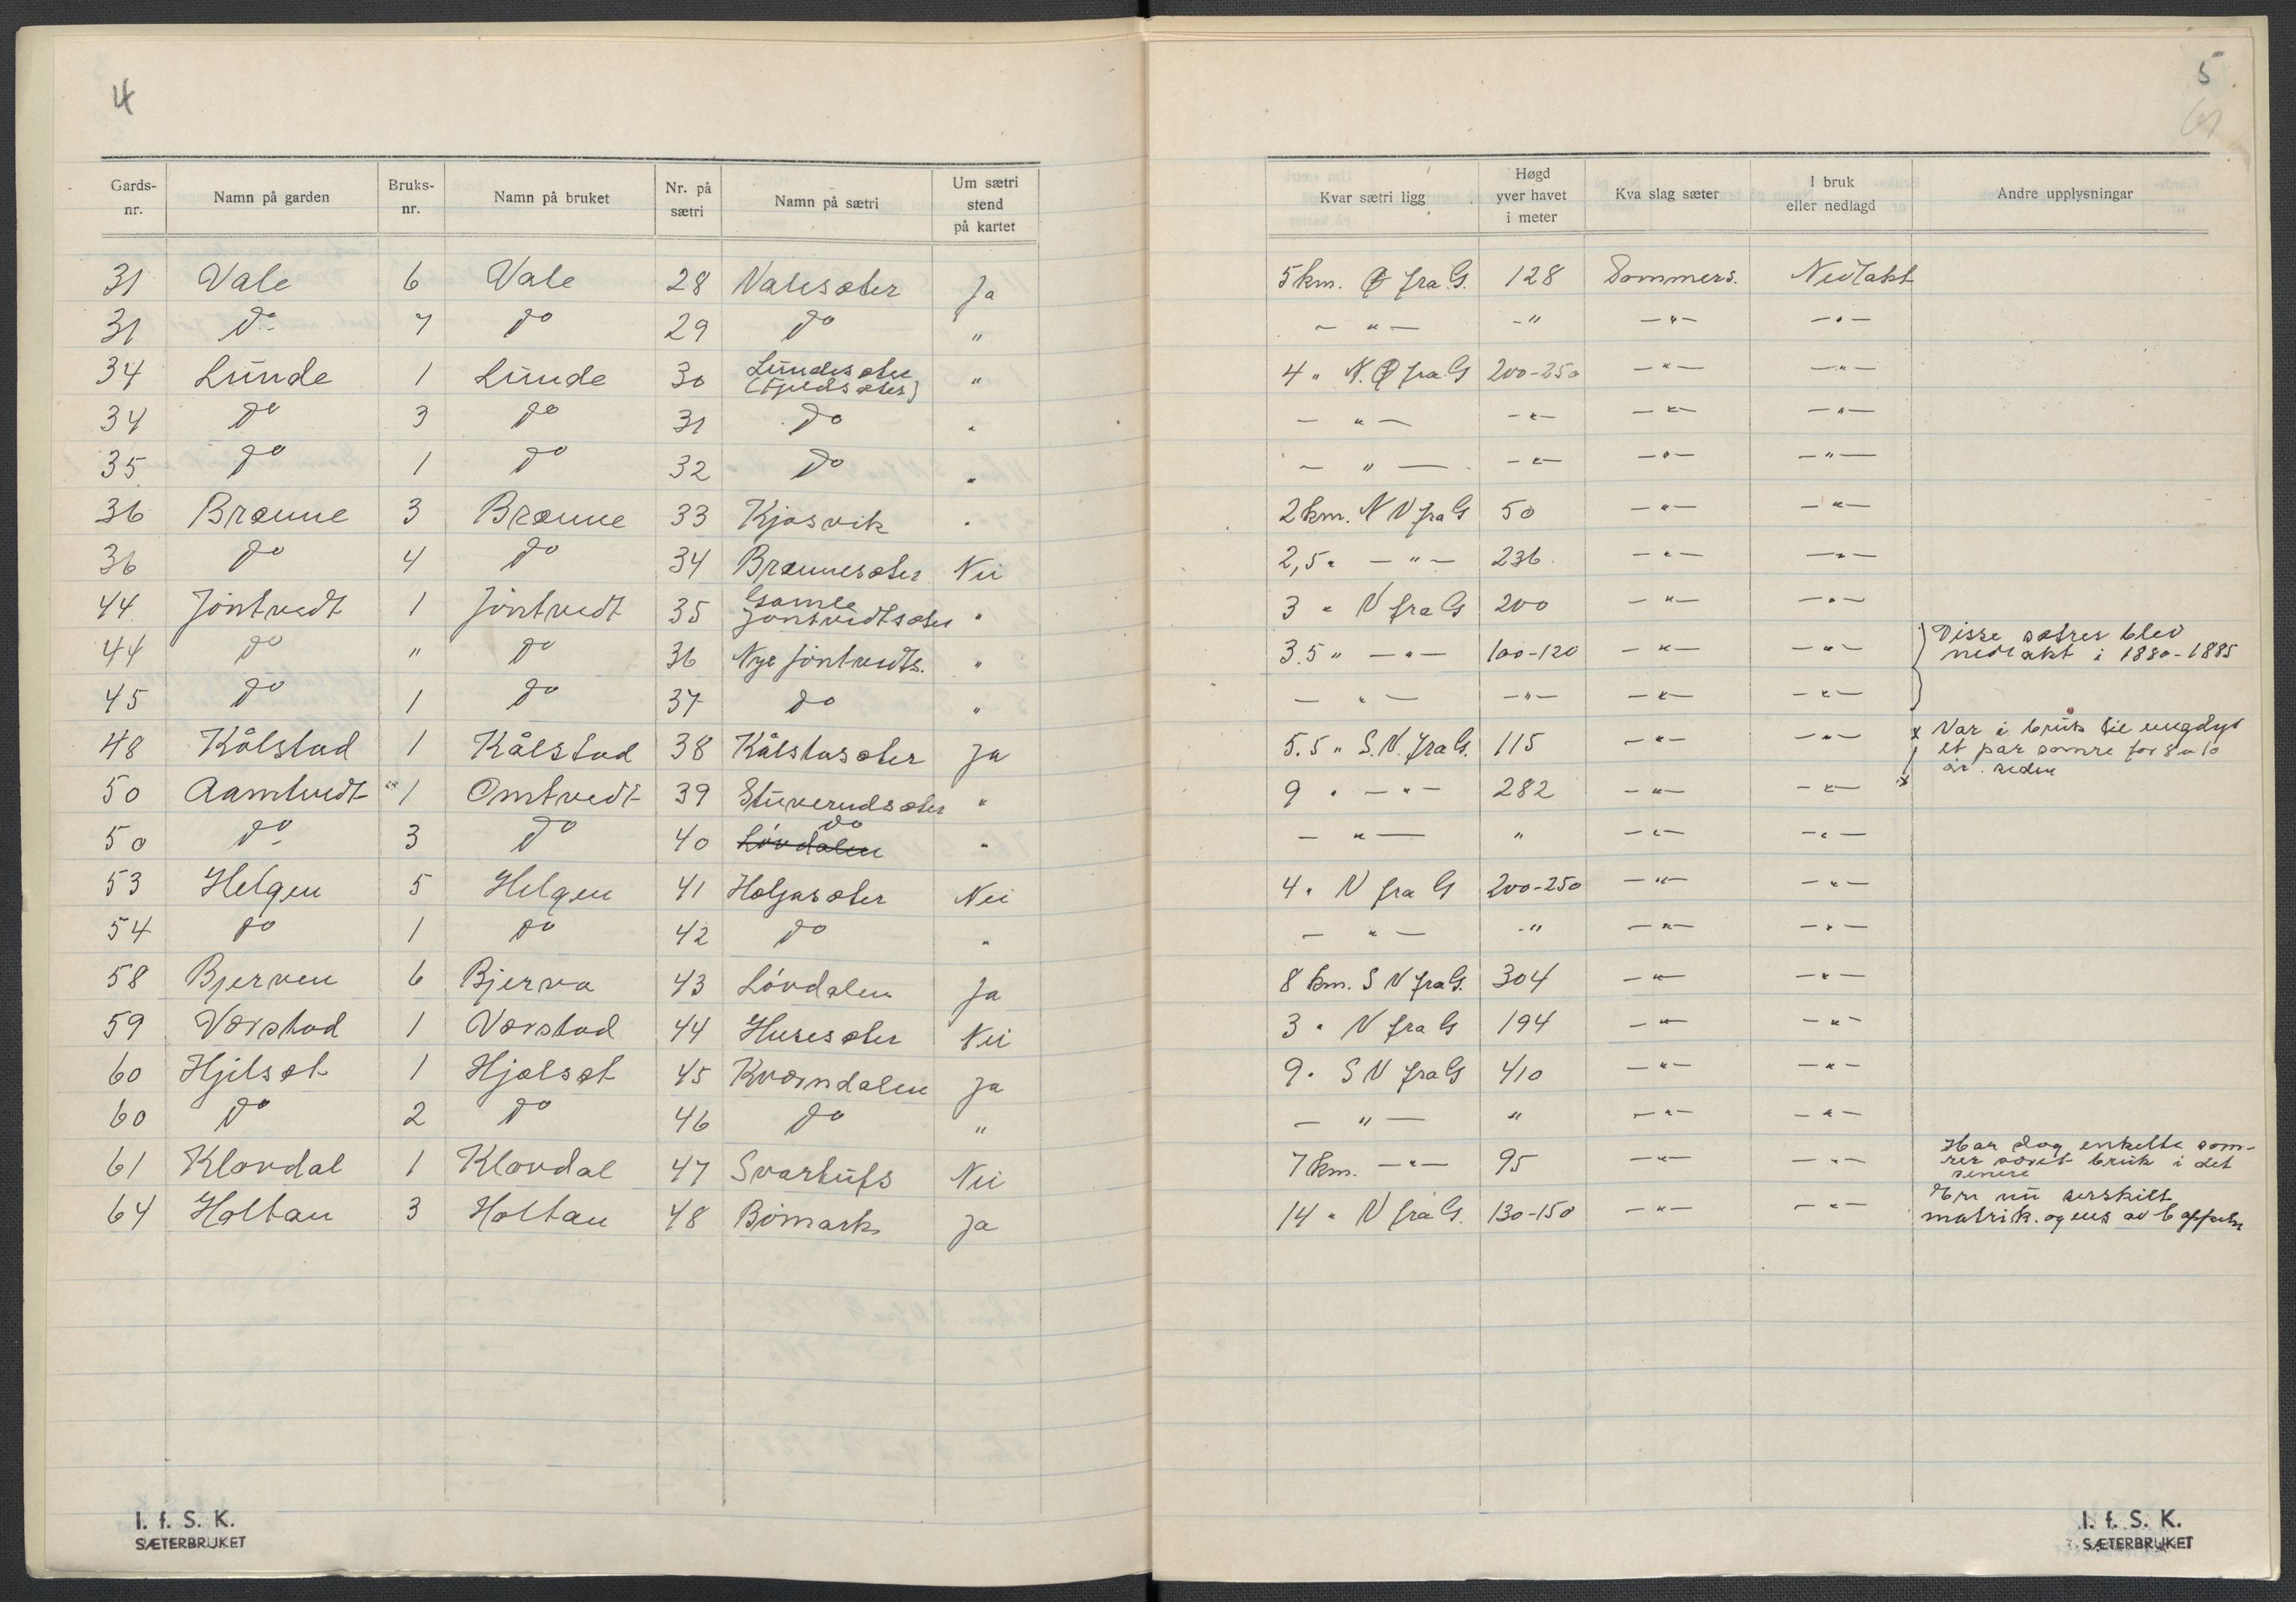 4
Gards-nr. Namn på garden Bruks-nr. Namn på bruket Nr. på sætri Namn på sætri Um sætri stend på kartet
31 Vale 6 Vale 28 Valesæter Ja
31 do 7 do 29 do "
34 Lunde 1 Lunde 30 Lundesæter (Fjeldsæter) "
34 do 3 do 31 do "
35 do 1 do 32 do "
36 Brænne 3 Brænne 33 Kjosvik "
36 do 4 do 34 Brænnesæter Nei
44 Jöntvedt 1 Jöntvedt 35 Gamle Jöntvedtsæter "
44 do " do 36 Nye Jöntvedts. "
45 do 1 do 37 do "
48 Kålstad 1 Kålstad 38 Kålstasæter Ja
50 Aamtvedt 1 Omtvedt 39 Stuverudsæter "
50 do 3 do 40 Lövdalen do "
53 Helgen 5 Helgen 41 Holjasæter Nei
54 do 1 do 42 do "
58 Bjerven 6 Bjerva 43 Lövdalen Ja
59 Værstad 1 Værstad 44 Husesæter Nei
60 Hjelsæt 1 Hjælsæt 45 Kværndalen Ja
60 do 2 do 46 do "
61 Klovdal 1 Klovdal 47 Svartufs Nei
64 Holtan 3 Holtan 48 Bömark Ja
I. f. S. K.
SÆTERBRUKET
5
Kvar sætri ligg Høgd yver havet i meter Kva slag sæter I bruk eller nedlagd Andre upplysningar
5 km. Ø fra G. 128 Sommers. Nedlakt
— " — -" — " — — " —
4 " N. Ø fra G 200-250 — " — — " —
— " — — " — — " — — " —
— " — — " — — " — — " —
2 km. N V fra G 50 — " — — " —
2,5 " — " — 236 — " — — " —
3 " V fra G 200 — " — — " —
3.5 " — " — 100-120 — " — — " — Disse sætrer blev nedlakt i 1880-1885
— " — — " — — " — — " —
5.5 " S.V. fra G. 115 — " — — " — x Var i bruk til ungdyr et par somre for 8 a 10 år. siden
9 " — " — 282 — " — — " — x
— " — " — " — — " —
4 " V fra G 200-250 — " — — " —
— " — -" — " — — " —
8 km. S V fra G. 304 — " — — " —
3 " V fra G 194 — " — — " —
9 " S V fra G 410 — " — — " —
— " — " — " — — " —
7 km. — " — 95 — " — — " — Har dog enkelte somrer været bruk i det senere
14 " V fra G. 130-150 — " — — " — Er nu serskilt matrik. og eies av
I. f. S. K.
SÆTERBRUKET